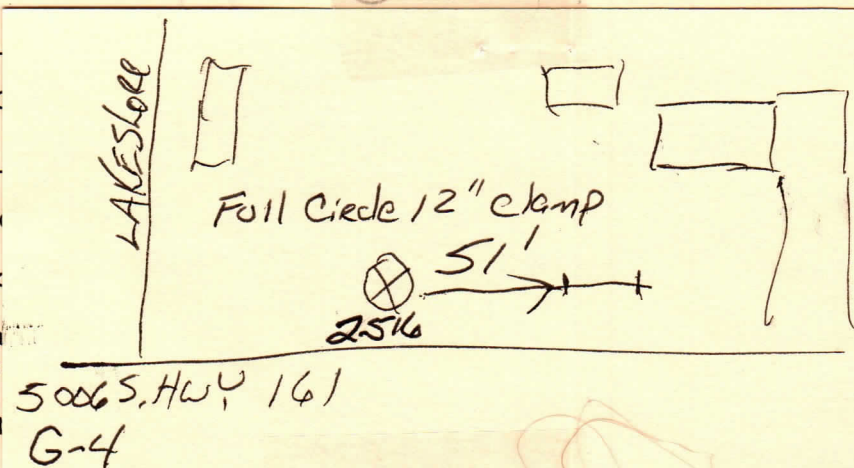 LAKESHORE
Full Circle 12" clamp
51'
2516
5006 S. HWY 161
G-4